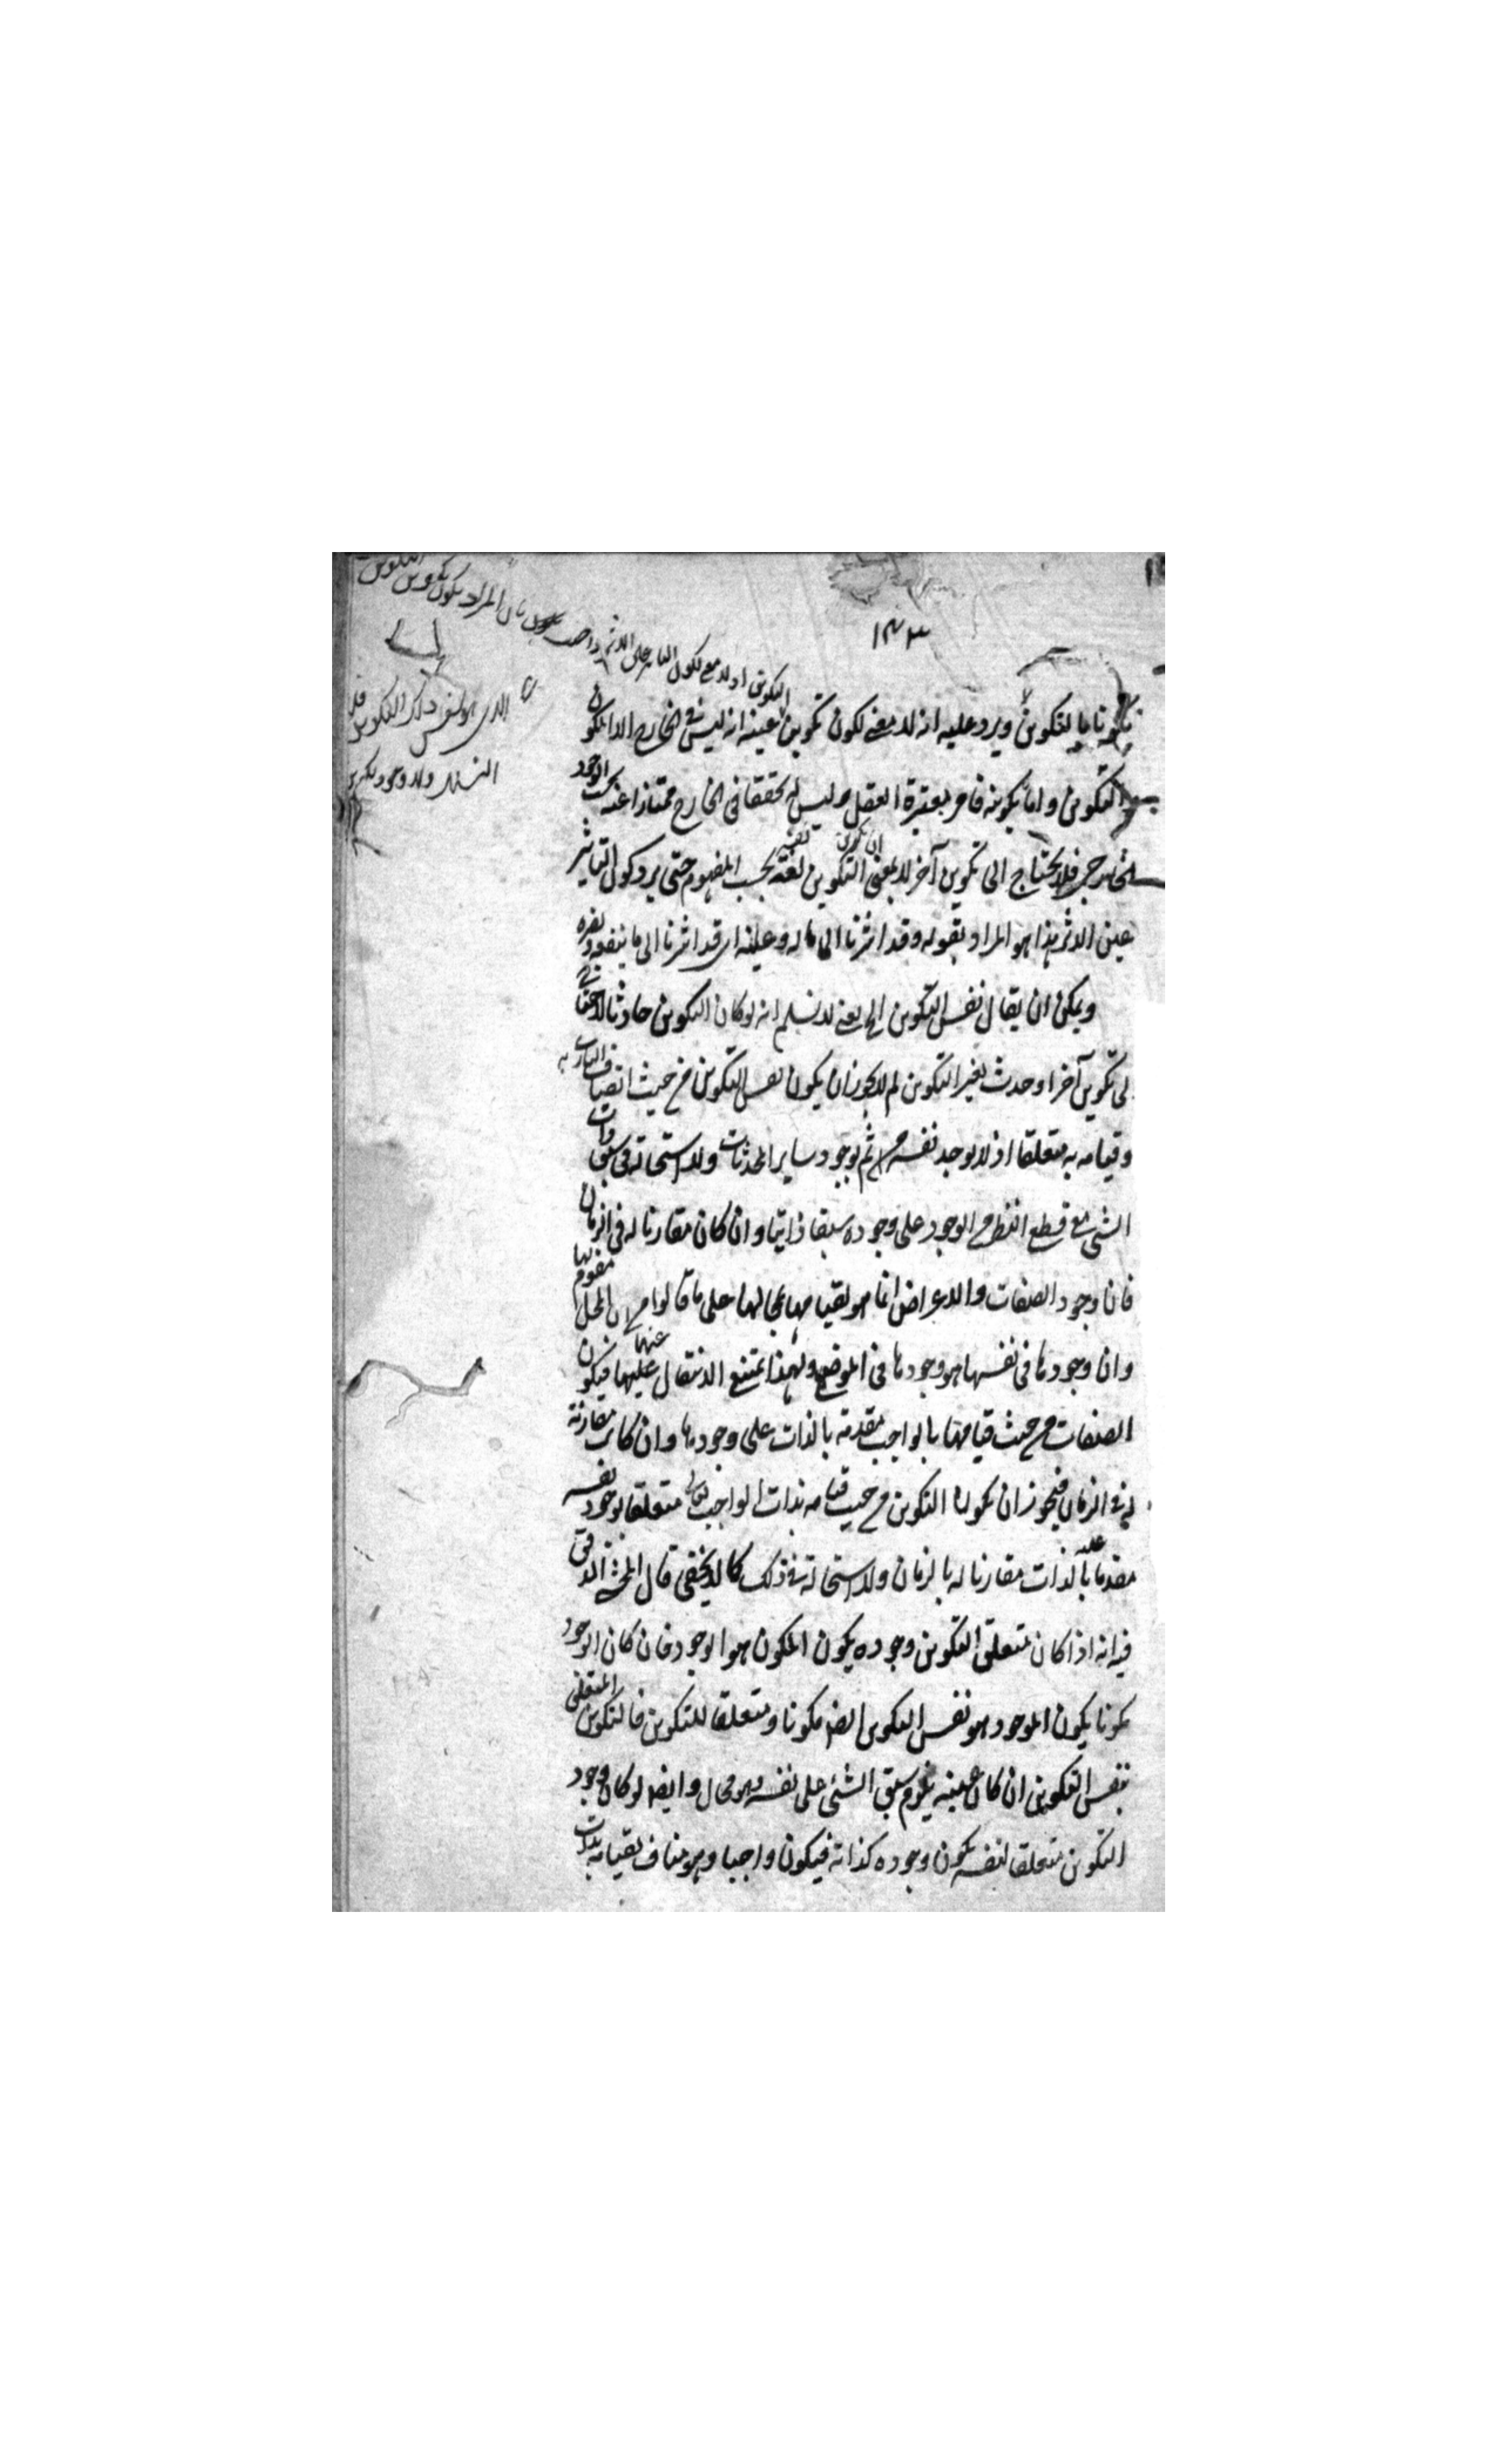 ١٤٣
التكوين اذ لا معنى لكون التاثير عين الاثر
المراد بكون تكوين التكوين
الذي هو نفس ذلك التكوين فلا
التسلسل ولا وجود تكوين
مكونا بالتكوين ويرد عليه انه لا معنى لكون تكوين لا عينه انه ليس في الخارج الا المكون
والتكوين واما تكوينه فامر يعتبره العقل وليس له تحققا في الخارج ممتازا عنه بحسب الوجود
الخارجي فلا يحتاج الى تكوين آخر لا بمعنى ان تكوين التكوين نفسه بحسب المفهوم حتى يرد كون التاثير
عين الاثر هذا هو المراد بقوله وقد اشرنا الى ما له وعليه اى قد اشرنا الى ما ينفعه ويضره
ويمكن ان يقال نفس التكوين الخ يعنى لا نسلم انه لو كان التكوين حادثا لاحتاج
الى تكوين آخر او حدث بغير التكوين لم لا يجوز ان يكون نفس التكوين من حيث اتصاف البارى به
وقيامه به متعلقا اولا بوجود نفسه ثم بوجود ساير المحدثات ولا استحالة فى سبق ذات
الشئ مع قطع النظر عن الوجود على وجوده سبقا ذاتيا وان كان مقارنا له فى الزمان
فان وجود الصفات والاعراض انما هو لقيامها بمحالها على ما قالوا من ان المحل مقوم لها
وان وجودها فى نفسها هو وجودها فى الموضع ولهذا يمتنع الانتقال عليها عنها فيكون
الصفات من حيث قيامها بالواجب مقدمة بالذات على وجودها وان كانت مقارنة
له فى الزمان فيجوز ان يكون التكوين من حيث قيامه بذات الواجب تعالى متعلقا بوجود نفسه
مقدما عليه بالذات مقارنا له بالزمان ولا استحالة فى ذلك كما لا يخفى قال المحشى المدقق
فيه انه اذا كان متعلق التكوين وجوده يكون المكون هو الوجود فان كان الوجود
مكونا يكون الموجود هو نفس التكوين ايضا مكونا ومتعلقا للتكوين فالتكوين المتعلق
بنفس التكوين ان كان عينه يلزم سبق الشئ على نفسه وهو محال وايضا لو كان وجود
التكوين متعلقا لنفسه يكون وجوده لذاته فيكون واجبا وهو مناف لقيامه بذات